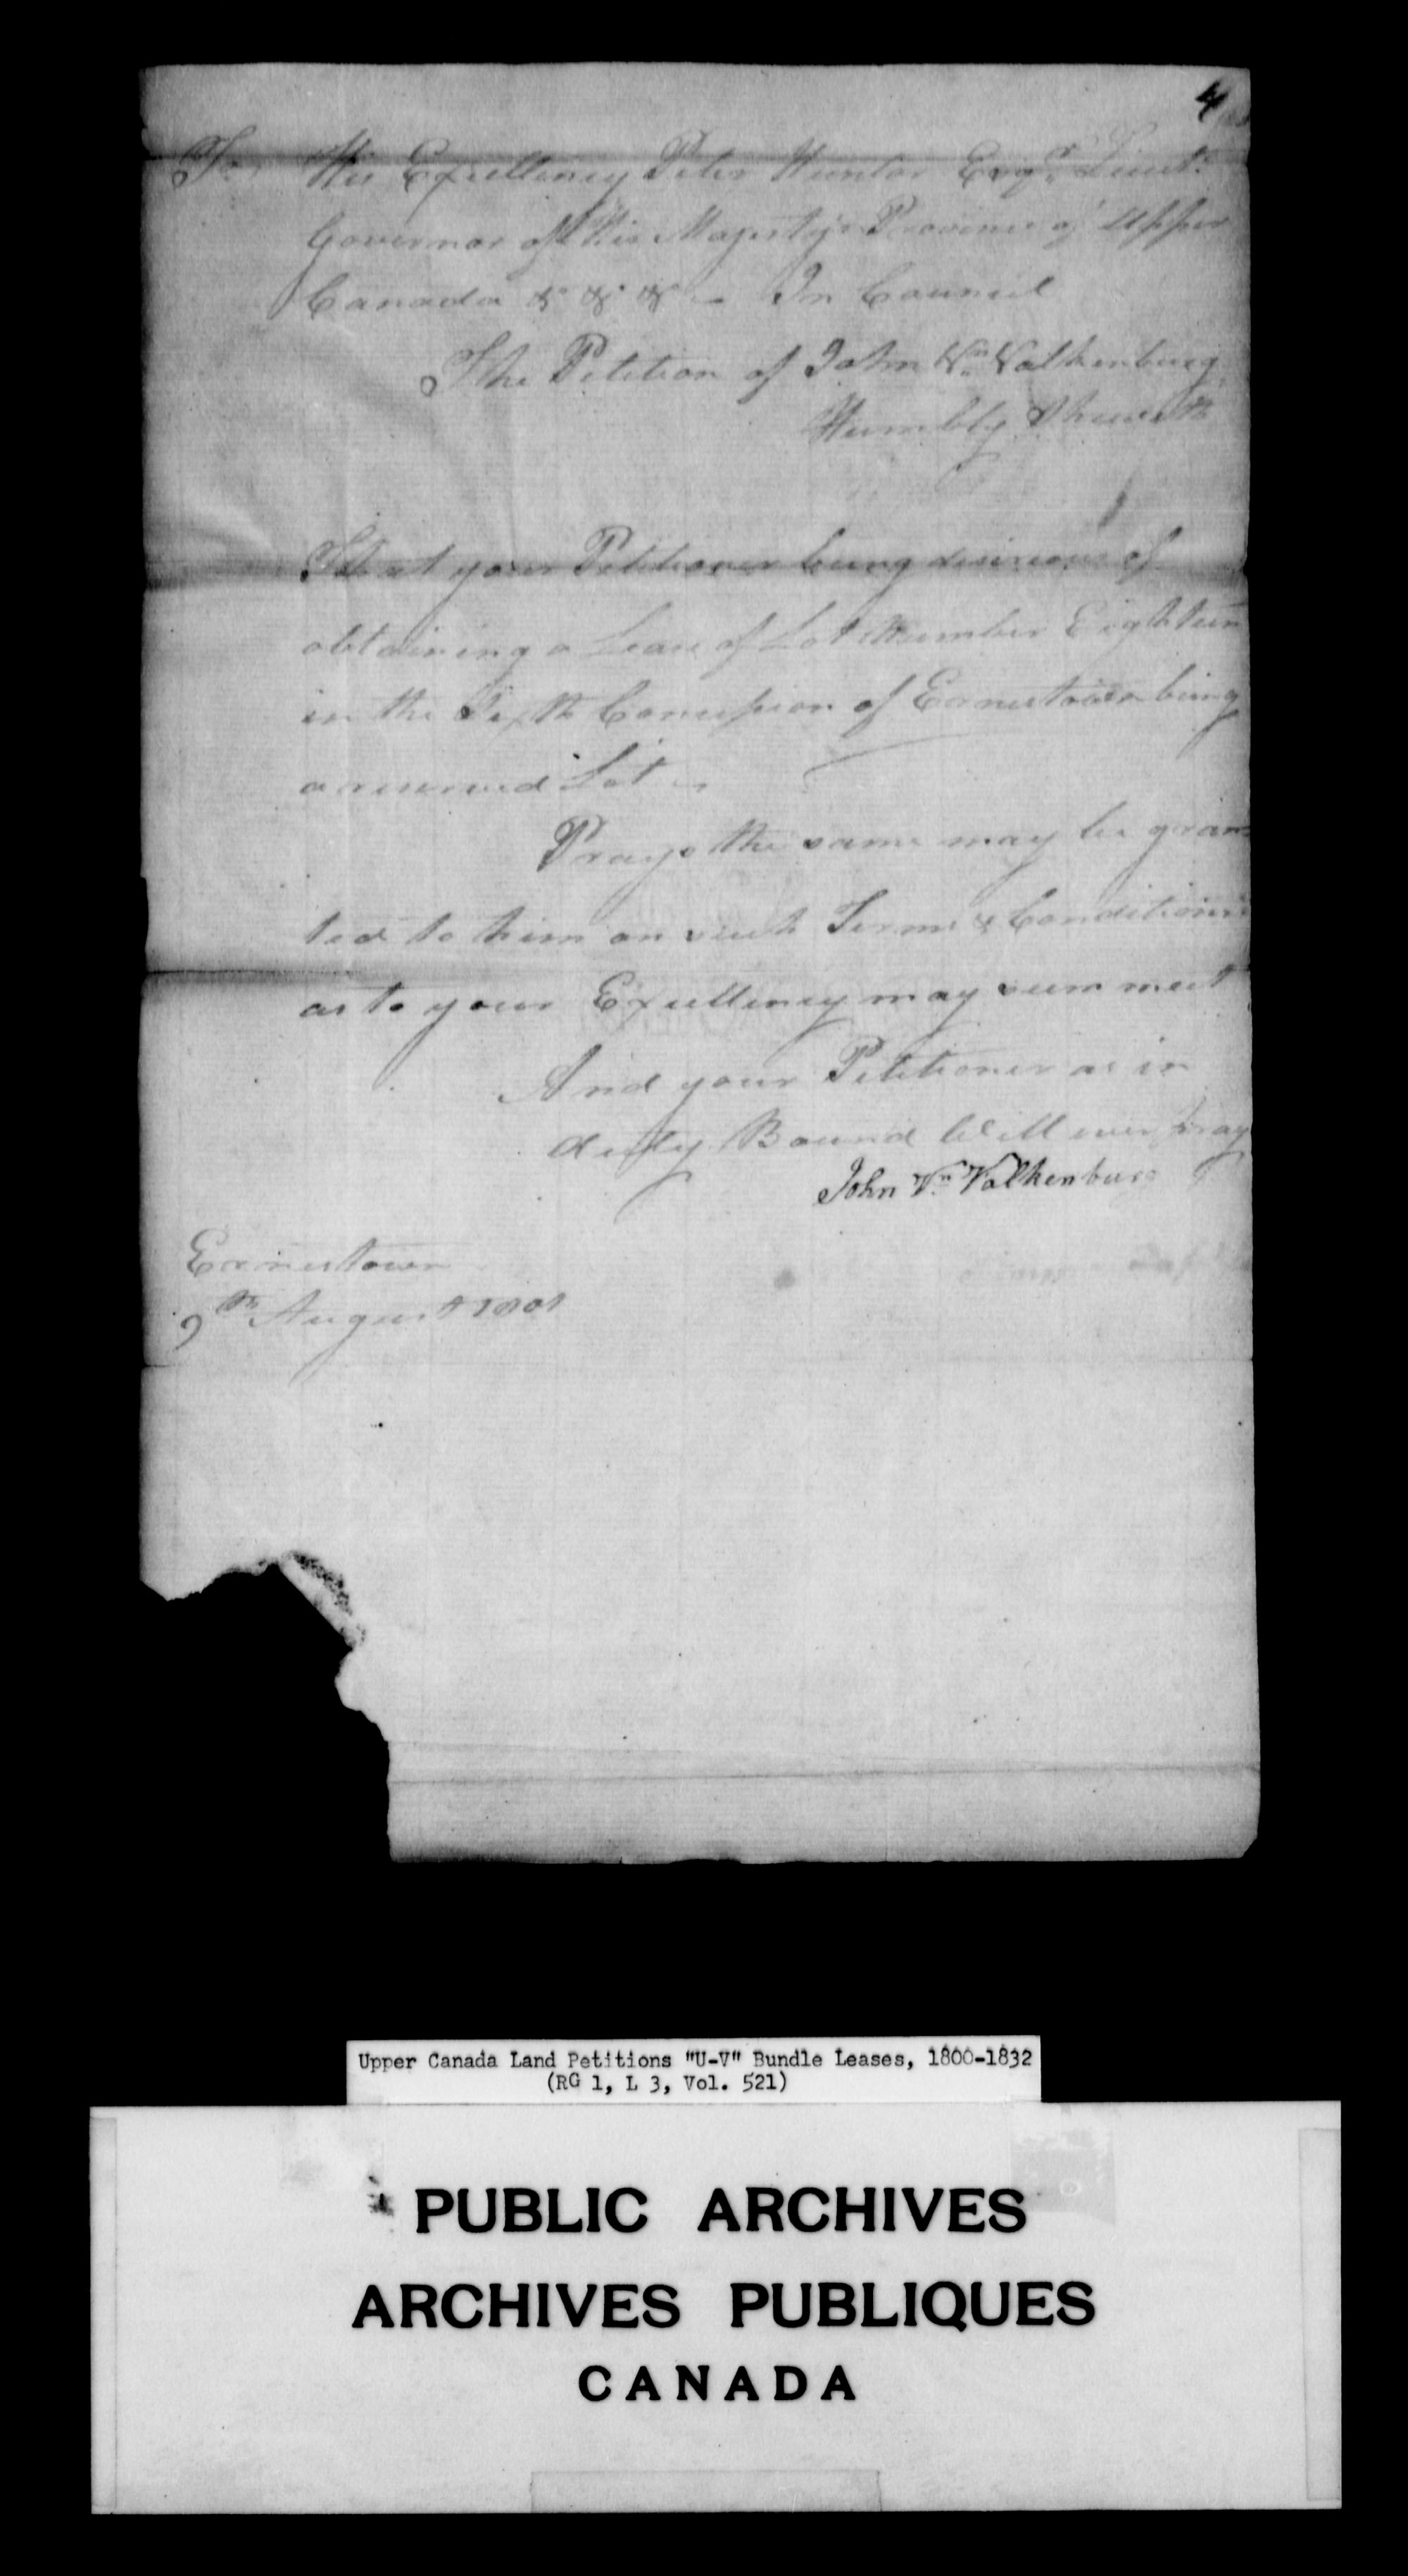 4
To His Excellency Peter Hunter Esqr. Lieut.
Governor of His Majestys Province of Upper
Canada & & & - In Council
The Petition of John Vn. Valkenburg
Humbly Sheweth
That your Petitioner being desirous of
obtaining a Lease of Lot Number Eighteen
in the Sixth Concession of Ernestown being
a reserved Lot -
Prays the same may be gran
ted to him on such Terms & Conditions
as to your Excellency may seem meet
And your Petitioner as in
duty Bound Will ever pray
John Vn. Valkenburg
Ernestown
9th August 1801
Upper Canada Land Petitions "U-V" Bundle Leases, 1800-1832
(RG 1, L 3, Vol. 521)
PUBLIC ARCHIVES
ARCHIVES PUBLIQUES
CANADA